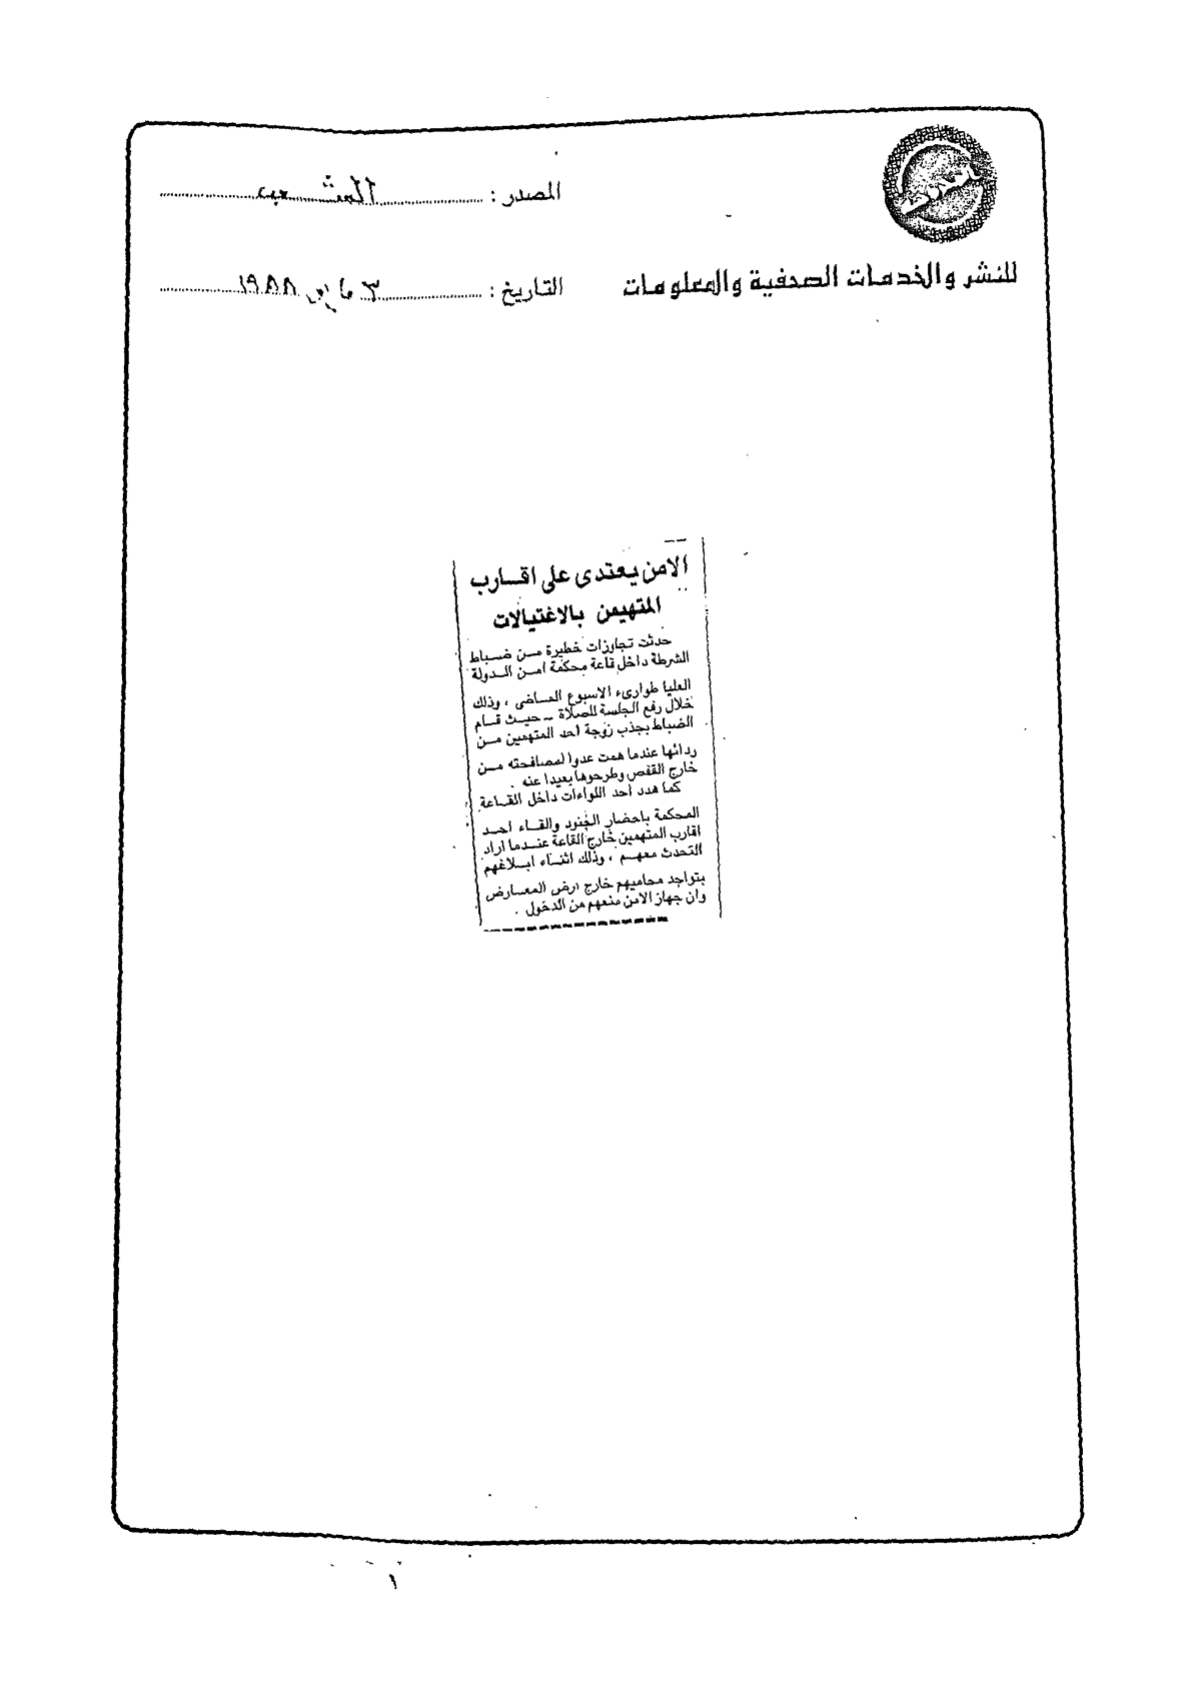 المصدر : الشعب
للنشر والخدمات الصحفية والمعلومات
التاريخ : ٣ مايو ١٩٨٨
الامن يعتدى على اقارب
المتهيمن بالاغتيالات
حدثت تجاوزات خطيرة من ضباط
الشرطة داخل قاعة محكمة امن الدولة
العليا طوارىء الاسبوع الماضى ، وذلك
خلال رفع الجلسة للصلاة ـ حيث قام
الضباط بجذب زوجة احد المتهمين من
ردائها عندما همت عدوا لمصافحته من
خارج القفص وطرحوها بعيدا عنه .
كما هدد أحد اللواءات داخل القاعة
المحكمة باحضار الجنود والقاء احد
اقارب المتهمين خارج القاعة عندما اراد
التحدث معهم ، وذلك اثناء ابلاغهم
بتواجد محاميهم خارج ارض المعارض
وان جهاز الامن منعهم من الدخول .
١